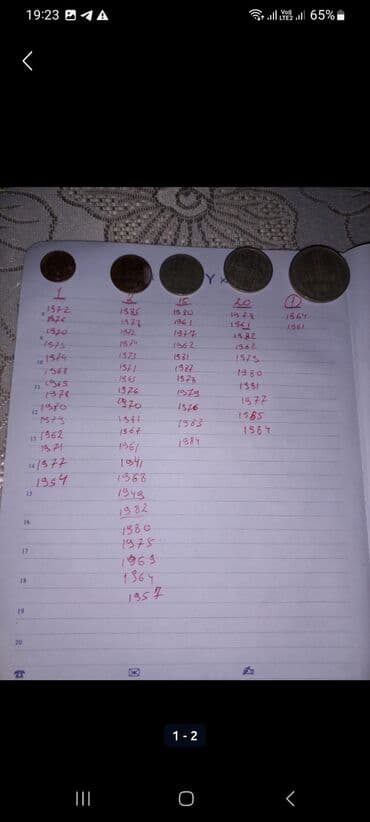 19:23
Vo)) LTE2
65%
1
5
15
20
1
1972 1985 1980 1979 1964
1976 1977 1961 1961 1961
1970 1977 1982
1973 1974 1962 1962
1974 1973 1981 1973
1968 1971 1982 1980
1965 1978 1981
1978 1976 1979 1977
1980 1970 1976 1985
1979 1981 1983 1984
1962 1967 1984
1971 1961
1977 1941
1954 1968
1949
1982
1980
1975
1963
1964
1957
10
11
12
13
14
15
16
17
18
19
20
1 - 2